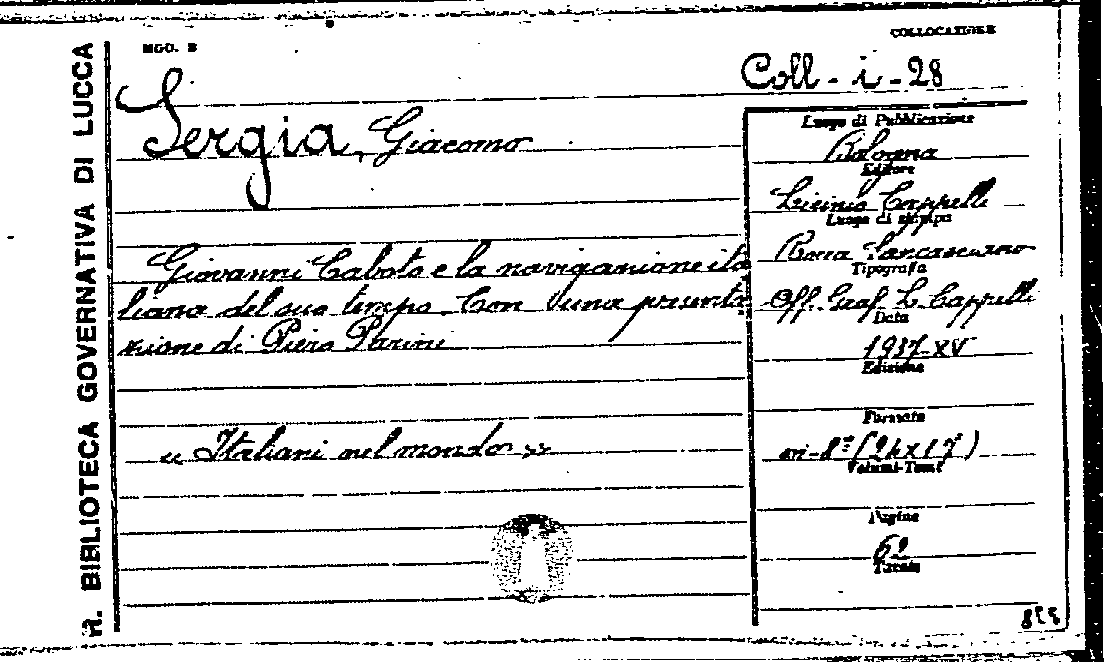 R. BIBLIOTECA GOVERNATIVA DI LUCCA
MOD. B
COLLOCAZIONE
Coll - i - 28
Sergia, Giacomo
Giovanni Caboto e la navigazione ita
liana del suo tempo. Con una presenta
zione di Piero Parini
« Italiani nel mondo »
Luogo di Pubblicazione
Bologna
Editore
Licinio Cappelli
Luogo di stampa
Rocca
Tipografia
Off. Graf. L. Cappelli
Data
1937-XV
Edizione
Formato
in-8° (24x17)
Volumi-Tomi
Pagine
62
Tavole